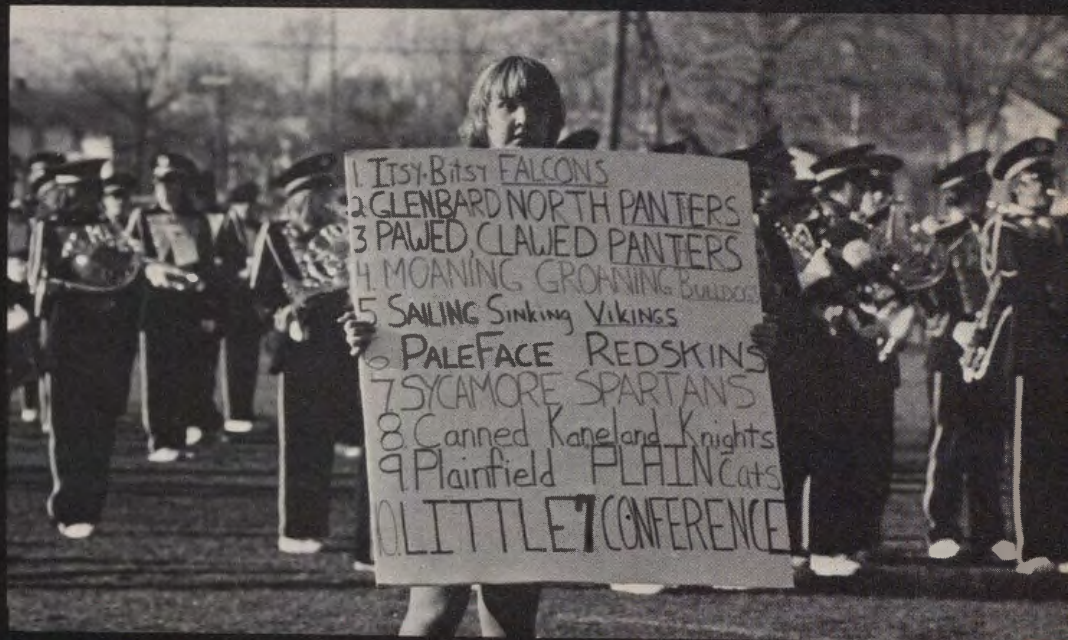 1. ITSY-BITSY FALCONS
2 GLENBARD NORTH PANTERS
3 PAWED, CLAWED PANTERS
4. MOANING GROANING BULLDOGS
5 SAILING Sinking VIKINGS
6 PALEFACE REDSKINS
7 SYCAMORE SPARTANS
8. Canned Kaneland Knights
9. Plainfield PLAIN Cats
10. LITTLE 7 CONFERENCE